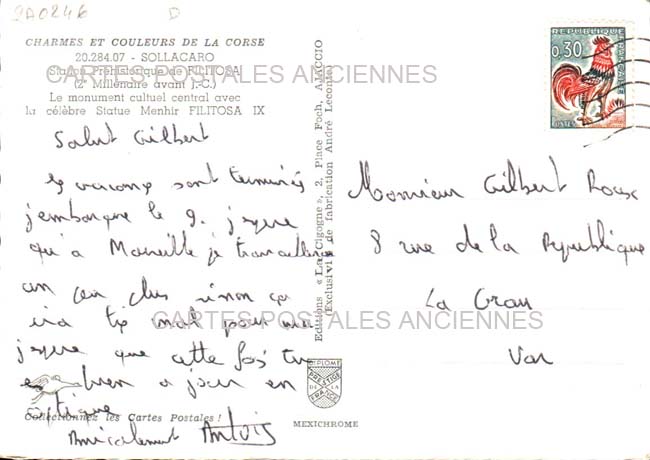 2A0246 D
CHARMES ET COULEURS DE LA CORSE
20.284.07 - SOLLACARO
Station Préhistorique de FILITOSA
(2e Millénaire avant J.-C.)
Le monument cultuel central avec
la célèbre Statue Menhir FILITOSA IX
CARTES POSTALES ANCIENNES
Salut Gilbert
vacances sont terminées
j'embarque le 9. j'espère
qu'à Marseille je travaillerai
un plus sinon ça
ira très mal pour moi
j'espère que cette fois tu
es bien à jour en
optique
Amicalement Antoine
Collectionnez les Cartes Postales !
Editions « La Cigogne », 2, Place Foch, AJACCIO
(Exclusivité de fabrication André Leconte)
DIPLOME
PRESTIGE
DE LA
FRANCE
MEXICHROME
REPUBLIQUE FRANCAISE
0,30
POSTES
Monsieur Gilbert Roux
8 rue de la République
La Crau
Var
CARTES POSTALES ANCIENNES